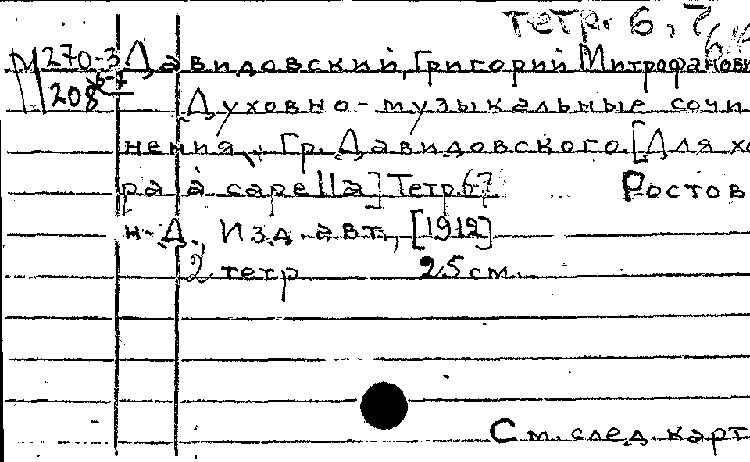 тетр. 6, 7
М 270-3 Давидовский, Григорий Митрофанови
208 6-7 Духовно-музыкальные сочи
нения Гр. Давидовского. [Для хо
ра a capella] Тетр. 6-7 Ростов
н-Д., Изд. авт., [1912]
2 тетр 25 см.
См. след. карт